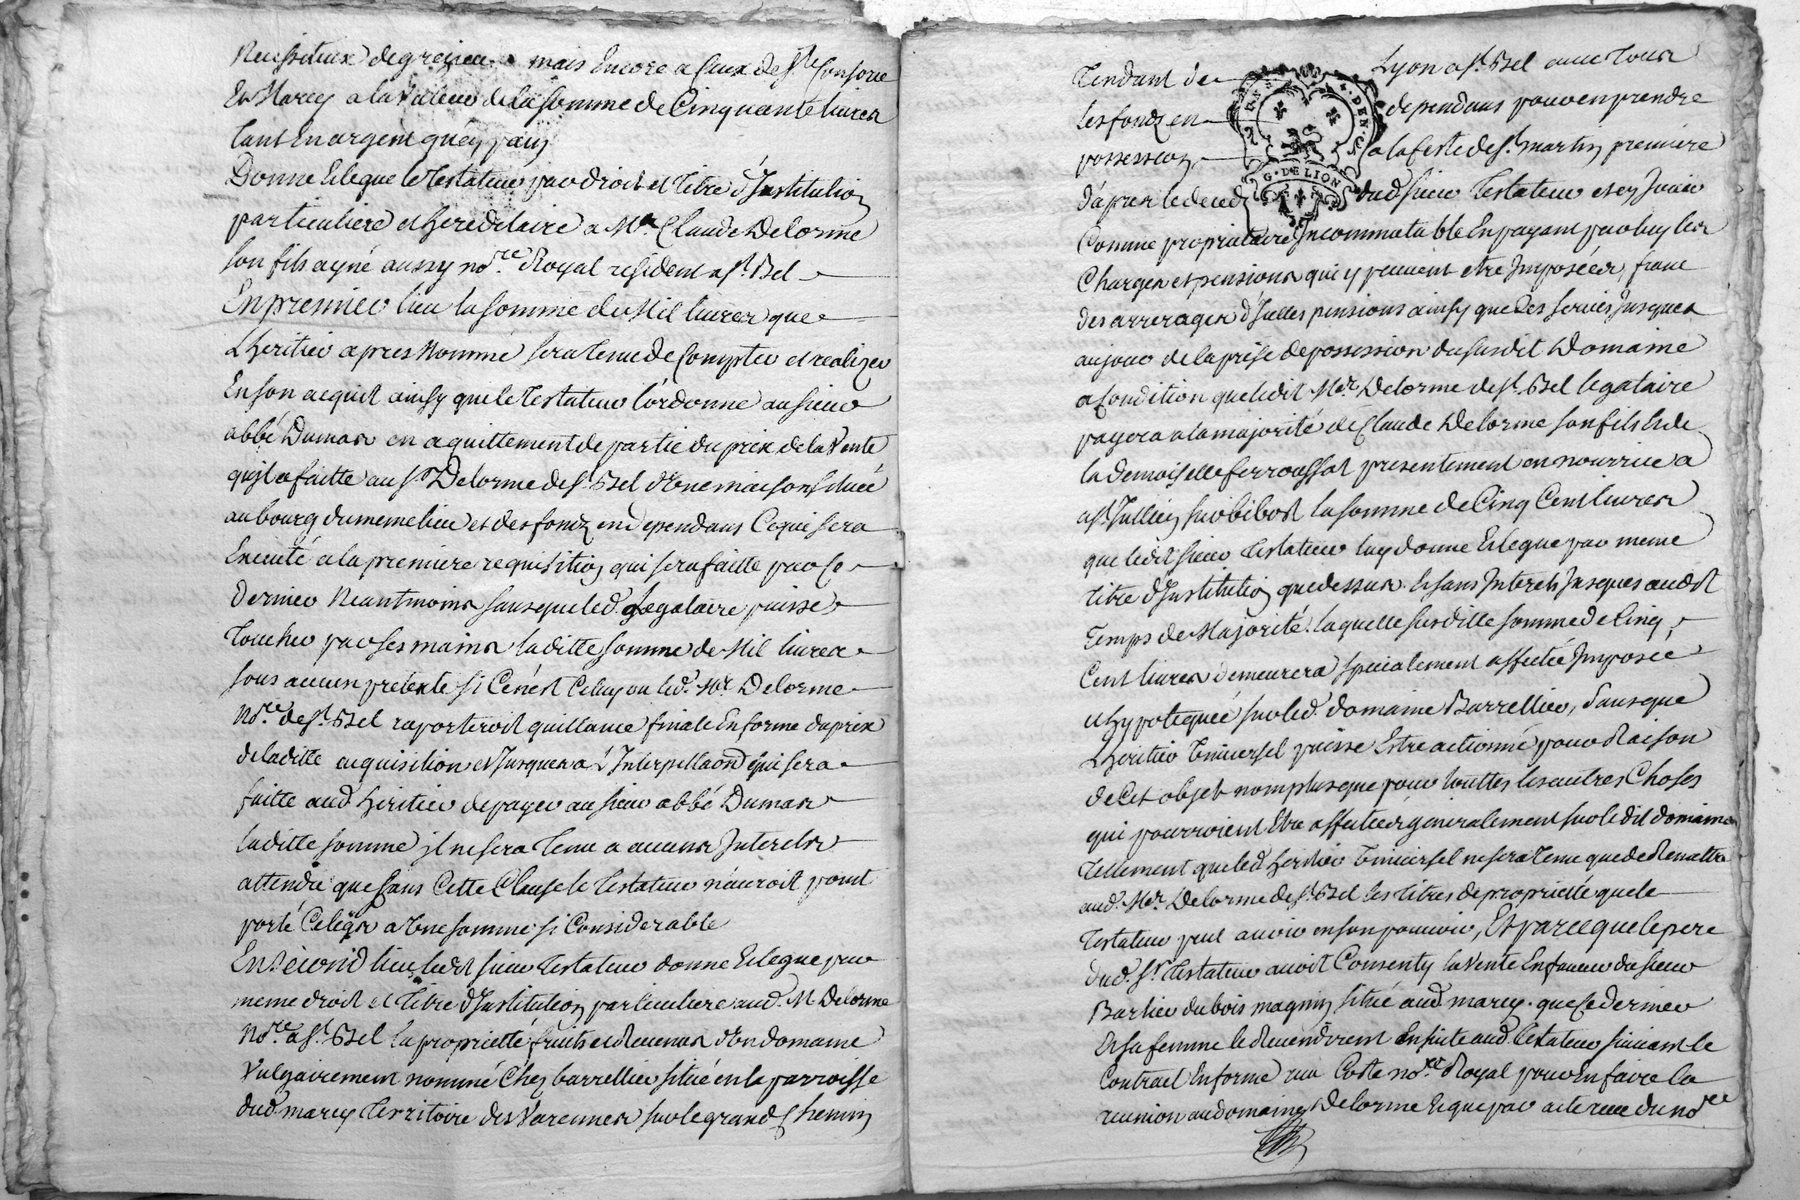 Necessiteux de grezieu mais Encore a Ceux de Ste Consorce
Et Marcy a la Valeur de la somme de Cinquante livres
tant En argent qu'en pain
Donne Et legue le Testateur par droit et titre d'Institution
particuliere et hereditaire a Mr Claude Delorme
son fils ayné aussy nore Royal resident a st Bel
En premier lieu la somme de Mil livres que
L'heritier apres Nommé sera tenu de Compter et realizer
En son acquit ainsy que le Testateur l'ordonne au sieur
abbé Dumas en aquittement de partie du prix de la Vente
qu'il a faitte au sr Delorme de st Bel d'Une maison située
au bourg du meme lieu et des fondz en Dependans Ce qui sera
Executé a la premiere requisition qui sera faitte par Ce
Dernier Neantmoins sans que led. Legataire puisse
toucher par ses mains laditte somme de Mil livres
sous aucun pretexte si Ce n'est Celuy ou led. Mr Delorme
Nore de st Bel raporteroit quittance finale En forme du prix
de laditte acquisition et Jusques a L'Interpellaon qui sera
faitte aud heritier de payer au sieur abbé Dumas
laditte somme il ne sera tenu a aucuns Interets
attendu que sans Cette Clause le Testateur n'auroit point
porté Ce legs a Une somme si Considerable
En second lieu ledit sieur Testateur donne Et legue par
meme droit et titre d'Institution particuliere aud. Mr Delorme
Nore a st Bel la proprietté fruits et Revenus d'Un domaine
Vulgairement nommé Chez barrellier situé en la parroisse
dud marcy territoire des Varennes sur le grand Chemin
Tendant de Lyon a st Bel avec Tous
les fondz en dependans pour en prendre
possession a la feste de st martin premiere
d'apres le deced dud sieur Testateur et en Jouir
Comme proprietaire Incommutable En payant par luy les
Charges et pensions qui y peuvent etre Imposéés, franc
des arrerages d'Icelles pensions ainsy que des servis Jusques
au jour de la prise de possession du susdit Domaine
a Condition que ledit Mr. Delorme de st Bel legataire
payera a la majorité de Claude Delorme son fils Et de
la demoiselle ferroussat presentement en nourrice a
st Jullien sur bibost la somme de Cinq Cent livres
que ledit sieur Testateur luy donne Et legue par meme
titre d'Institution que dessus Et sans Interets Jusques audit
Temps de Majorité. laquelle susditte somme de Cinq
Cent livres demeurera specialement affectée Imposée
et hypotequée sur led. domaine Barrellier, sans que
L'heritier Universel puisse Estre actionné pour Raison
de Cet objet nomplus que pour touttes les autres Choses
qui pourroient Etre affectéés generalement sur ledit domaine
Tellement que led heritier Universel ne sera tenu que de Remettre
aud. Mr. Delorme de st Bel les titres de proprietté que le
Testateur peut avoir en son pouvoir, Et parce que le pere
dud. sr. Testateur avoit Consenty la Vente En faveur du sieur
Barlier du bois magnin situé aud marcy. que Ce dernier
Et sa femme le Revendirent Ensuite aud Testateur suivant le
Contract En forme reçu Coste nore Royal pour En faire la
reunion au domaine Delorme Et que par acte recu dud nore
G. DE LION